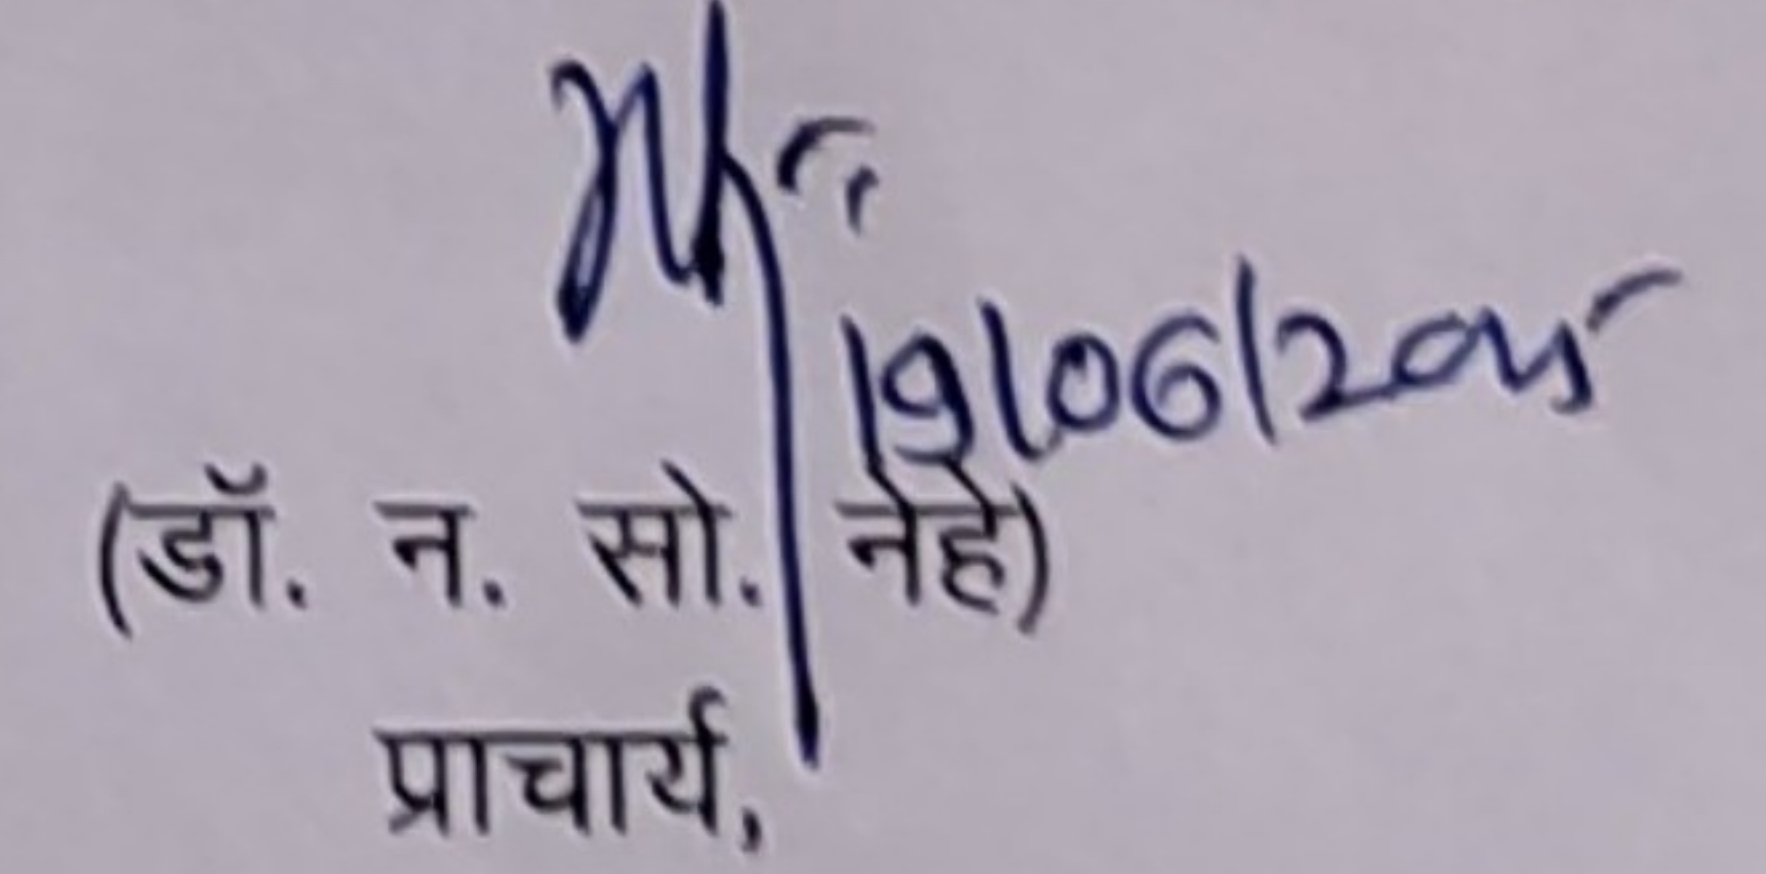 19/06/2025
(डॉ. न. सो. नेहे)
प्राचार्य,